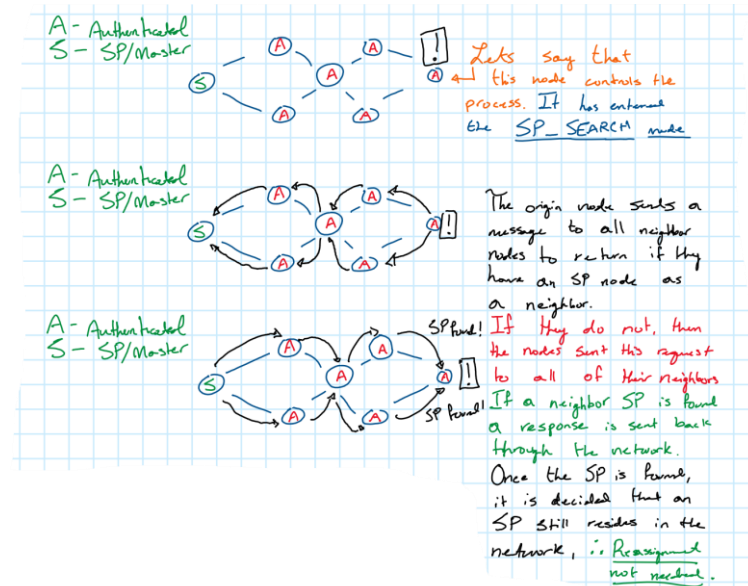 A - Authenticated
S - SP/Master
S
A
A
A
A
A
!
A
Lets say that
this node controls the
process. It has entered
the SP_SEARCH mode
A - Authenticated
S - SP/Master
S
A
A
A
A
A
A
!
The origin node sends a
message to all neighbor
nodes to return if they
have an SP node as
a neighbor.
A - Authenticated
S - SP/Master
S
A
A
A
A
A
SP found!
A
!
SP found!
If they do not, then
the nodes sent this request
to all of their neighbors
If a neighbor SP is found
a response is sent back
through the network.
Once the SP is found,
it is decided that an
SP still resides in the
network, ∴ Reassignment
not needed.